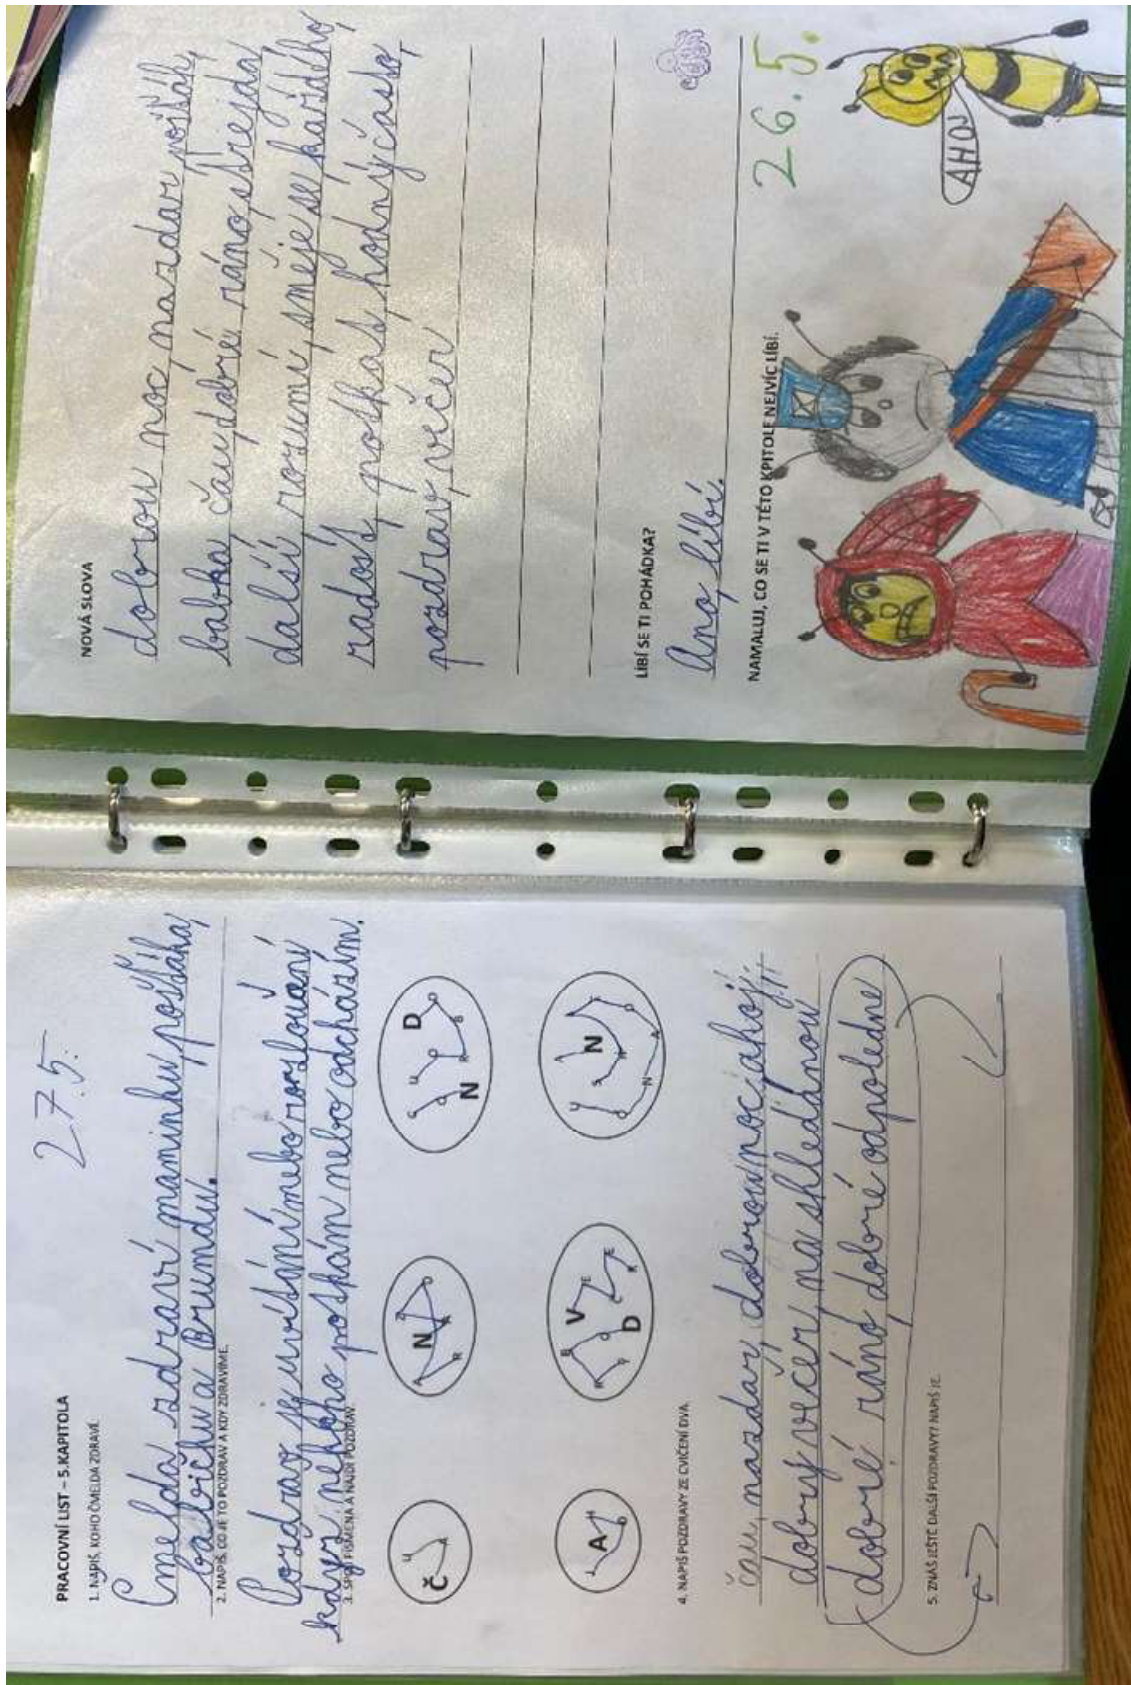 27.5.
PRACOVNÍ LIST – 5.KAPITOLA
1. NAPIŠ, KOHO ČMELDA ZDRAVÍ.
Čmelda zdraví maminku, pošťáka,
babičku a Brumdu.
2. NAPIŠ, CO JE TO POZDRAV A KDY ZDRAVÍME.
Pozdrav je uvítání nebo rozloučení
když někoho potkám nebo odcházím.
3. SPOJ PÍSMENA A NAJDI POZDRAV.
Č A U
N A Z D A R
N D
A H O J
V D
N
4. NAPIŠ POZDRAVY ZE CVIČENÍ DVA.
čau, nazdar, dobrou noc, ahoj,
dobrý večer, na shledanou
dobré ráno dobré odpoledne
5. ZNÁŠ JEŠTĚ DALŠÍ POZDRAVY? NAPIŠ JE.
NOVÁ SLOVA
dobrou noc, nazdar, pošťák,
babka, čau, dobré ráno, strejda,
další, rozumí, směje se, každého,
radost, potkat, hodný, často,
pozdrav, večer
LÍBÍ SE TI POHÁDKA?
Ano, líbí.
NAMALUJ, CO SE TI V TÉTO KPITOLE NEJVÍC LÍBÍ.
26.5.
AHOJ